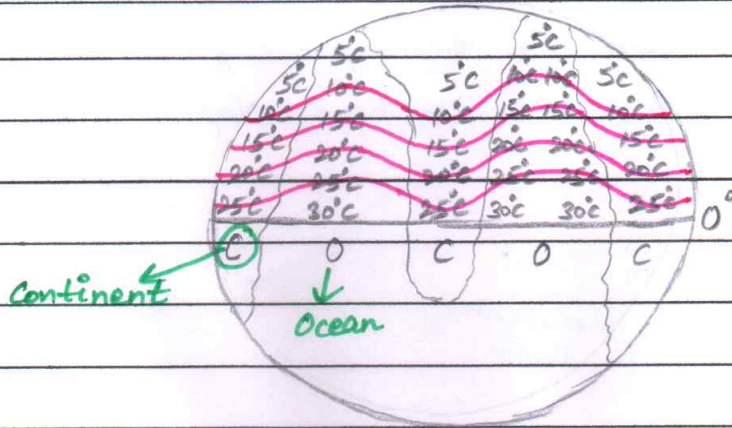 5°C
5°C
5°C 5°C 5°C
10°C 10°C 10°C
10°C 10°C 10°C
15°C 15°C 15°C
15°C 15°C 15°C
20°C 20°C 20°C
20°C 20°C 20°C
25°C 25°C 25°C
25°C 30°C 25°C 30°C 30°C 25°C
0°
C O C O C
Continent
Ocean